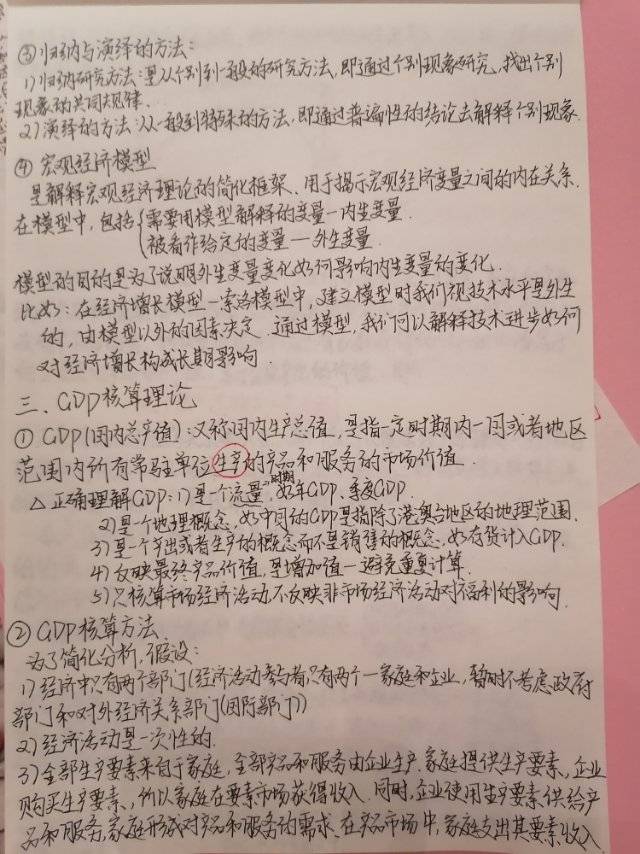 ③归纳与演绎的方法：
1)归纳研究方法：是从个别到一般的研究方法，即通过个别现象研究，找出个别
现象的共同规律．
2)演绎的方法：从一般到特殊的方法，即通过普遍性的结论去解释个别现象．
④ 宏观经济模型
是解释宏观经济理论的简化框架、用于揭示宏观经济变量之间的内在关系．
在模型中，包括{需要用模型解释的变量—内生变量．
被看作给定的变量—外生变量．
模型的目的是为了说明外生变量变化如何影响内生变量的变化．
比如：在经济增长模型—索洛模型中，建立模型时我们视技术水平是外生
的，由模型以外的因素决定．通过模型，我们可以解释技术进步如何
对经济增长构成长期影响．
三、GDP核算理论
① GDP(国内总产值)：又称国内生产总值，是指一定时期内一国或者地区
范围内所有常驻单位生产的产品和服务的市场价值．
△正确理解GDP：1)是一个流量，时期 如年GDP、季度GDP．
2)是一个地理概念，如中国的GDP是指除了港澳台地区的地理范围．
3)是一个产出或者生产的概念而不是销售的概念，如存货计入GDP．
4)反映最终产品价值，是增加值—避免重复计算．
5)只核算市场经济活动不反映非市场经济活动对福利的影响．
② GDP核算方法．
为了简化分析，假设：
1)经济中只有两个部门(经济活动参与者只有两个—家庭和企业，暂时不考虑政府
部门和对外经济关系部门(国际部门))
2)经济活动是一次性的．
3)全部生产要素来自于家庭，全部产品和服务由企业生产．家庭提供生产要素、企业
购买生产要素、所以家庭在要素市场获得收入．同时，企业使用生产要素供给产
品和服务，家庭形成对产品和服务的需求．在产品市场中，家庭支出其要素收入